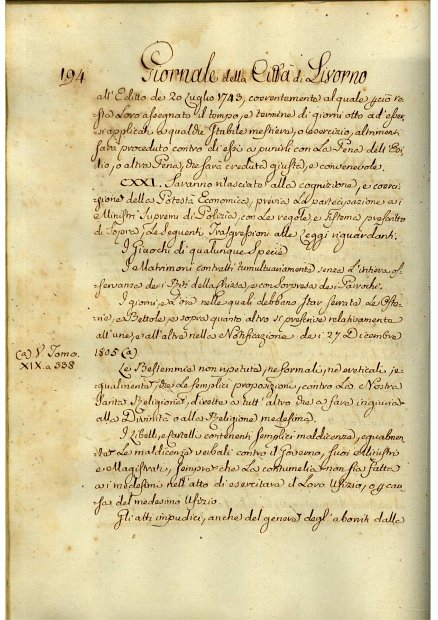 194 Giornale della Città di Livorno
all' Editto de 20 Luglio 1743, coerentemente al quale perciò re-
sta Loro assegnato il tempo, e termine di giorni otto ad esser-
si applicati a qualche stabile mestiero, o esercizio, altrimenti
sarà proceduto contro di essi a punirli con La Pena dell' Esi-
lio, o altra Pena, che sarà creduta giusta, e convenevole.
CXXI. Saranno rilasciate alla cognizione, e coerci-
zione della Potestà Economica, previa La partecipazione a i
Ministri Supremi di Polizia, con Le regole, e sistema, prescritto
di sopra, Le seguenti Trasgressioni alle Leggi riguardanti.
I Giuochi di qualunque Specie
I Matrimoni contratti tumultuariamente senza L'intiera os-
servanza de i Riti della Chiesa, e con Sorpresa de i Parrochi.
I giorni, e L'ora nelle quali debbano star serrate Le Oste-
rie, e Bettole, e sopra quanto altro si prescrive relativamente
all' une, e all' altro nella Notificazione de i 27 Dicembre
1805 (a)
(a) V. Tomo.
XIX. a 338
Le Bestemmie non ripetute, ne formali, ne ereticali, e
egualmente, che Le semplici proposizioni, contro La Nostra
Santa Religione, dirette a tutt' altro che a fare ingiuria
alla Divinità o alla Religione medesima.
I Libelli, e cartelli contenenti semplici maldicenze, egualmen-
te che Le maldicenze verbali contro il Governo, suoi Ministri
e Magistrati, sempre che La contumelia non sia fatta
a i medesimi nell' atto di esercitare il Loro Ufizio, o per cau-
sa del medesimo Ufizio.
Gli atti impudici, anche del genere degl' aborriti dalle